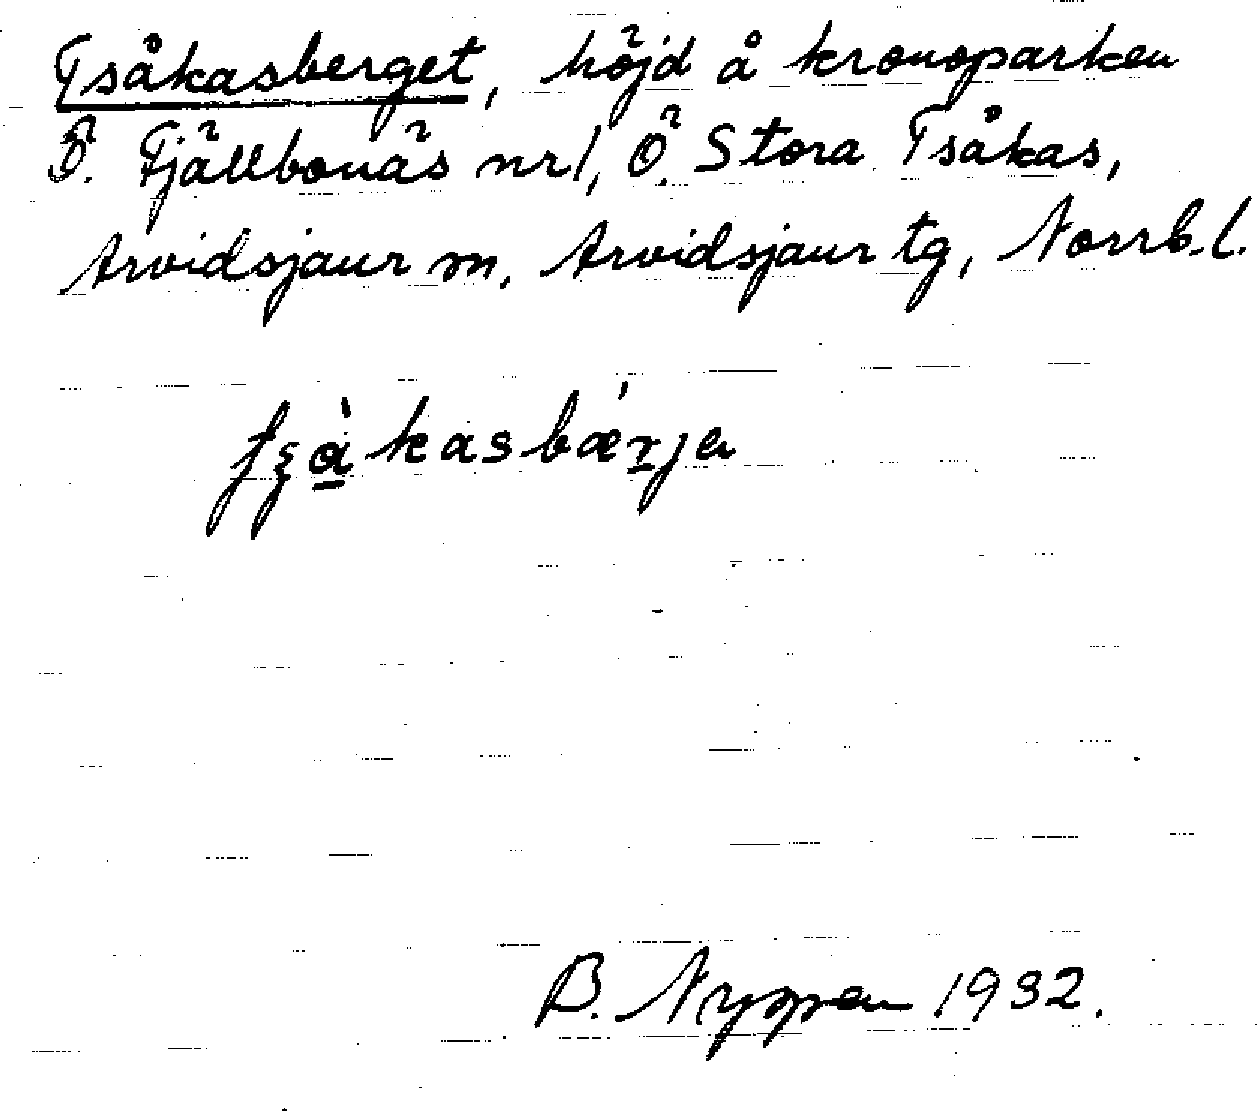 Tsåkasberget, höjd å kronoparken
Ö. Fjällbonäs nr 1, Ö. Stora Tsåkas,
Arvidsjaur sn, Arvidsjaur tg, Norrb. l.
B. Nyppen 1932.